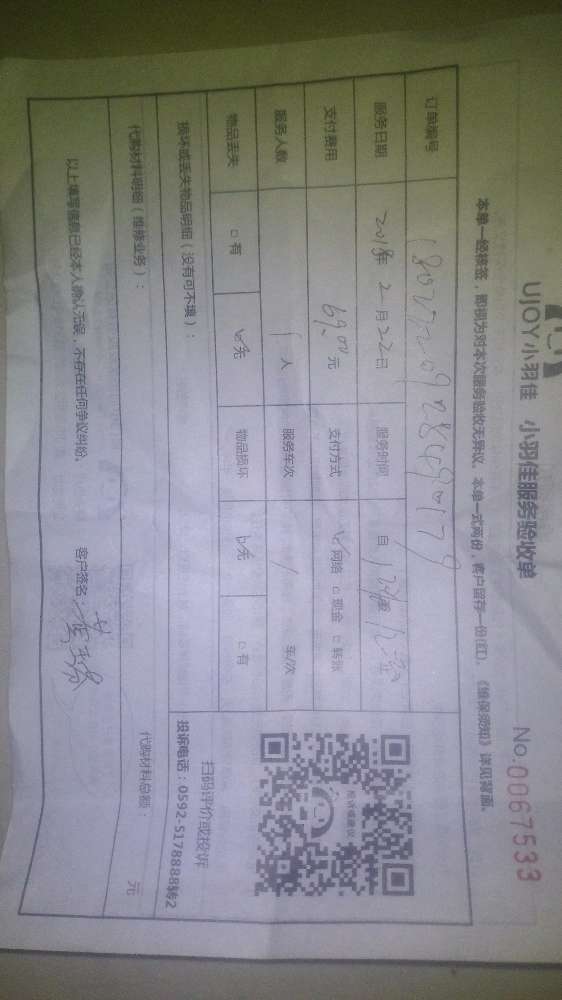 UJOY小羽佳 小羽佳服务验收单
No.0067533
本单一经核签，即视为对本次服务验收无异议。本单一式两份，客户留存一份(红)。《维保须知》详见背面。
订单编号
服务日期 2018年 2月22日 服务时间 自
支付费用 69.00元 支付方式 ☑网络 □现金 □转账
服务人数 1人 服务车次 / 车/次
物品丢失 □有 ☑无 物品损坏 ☑无 □有
投诉或建议
扫码评价或投诉
投诉电话：0592-5178888转2
损坏或丢失物品明细（没有可不填）：
代购材料明细（维修业务）： 代购材料总额： 元
以上填写信息已经本人确认无误，不存在任何争议纠纷。 客户签名：